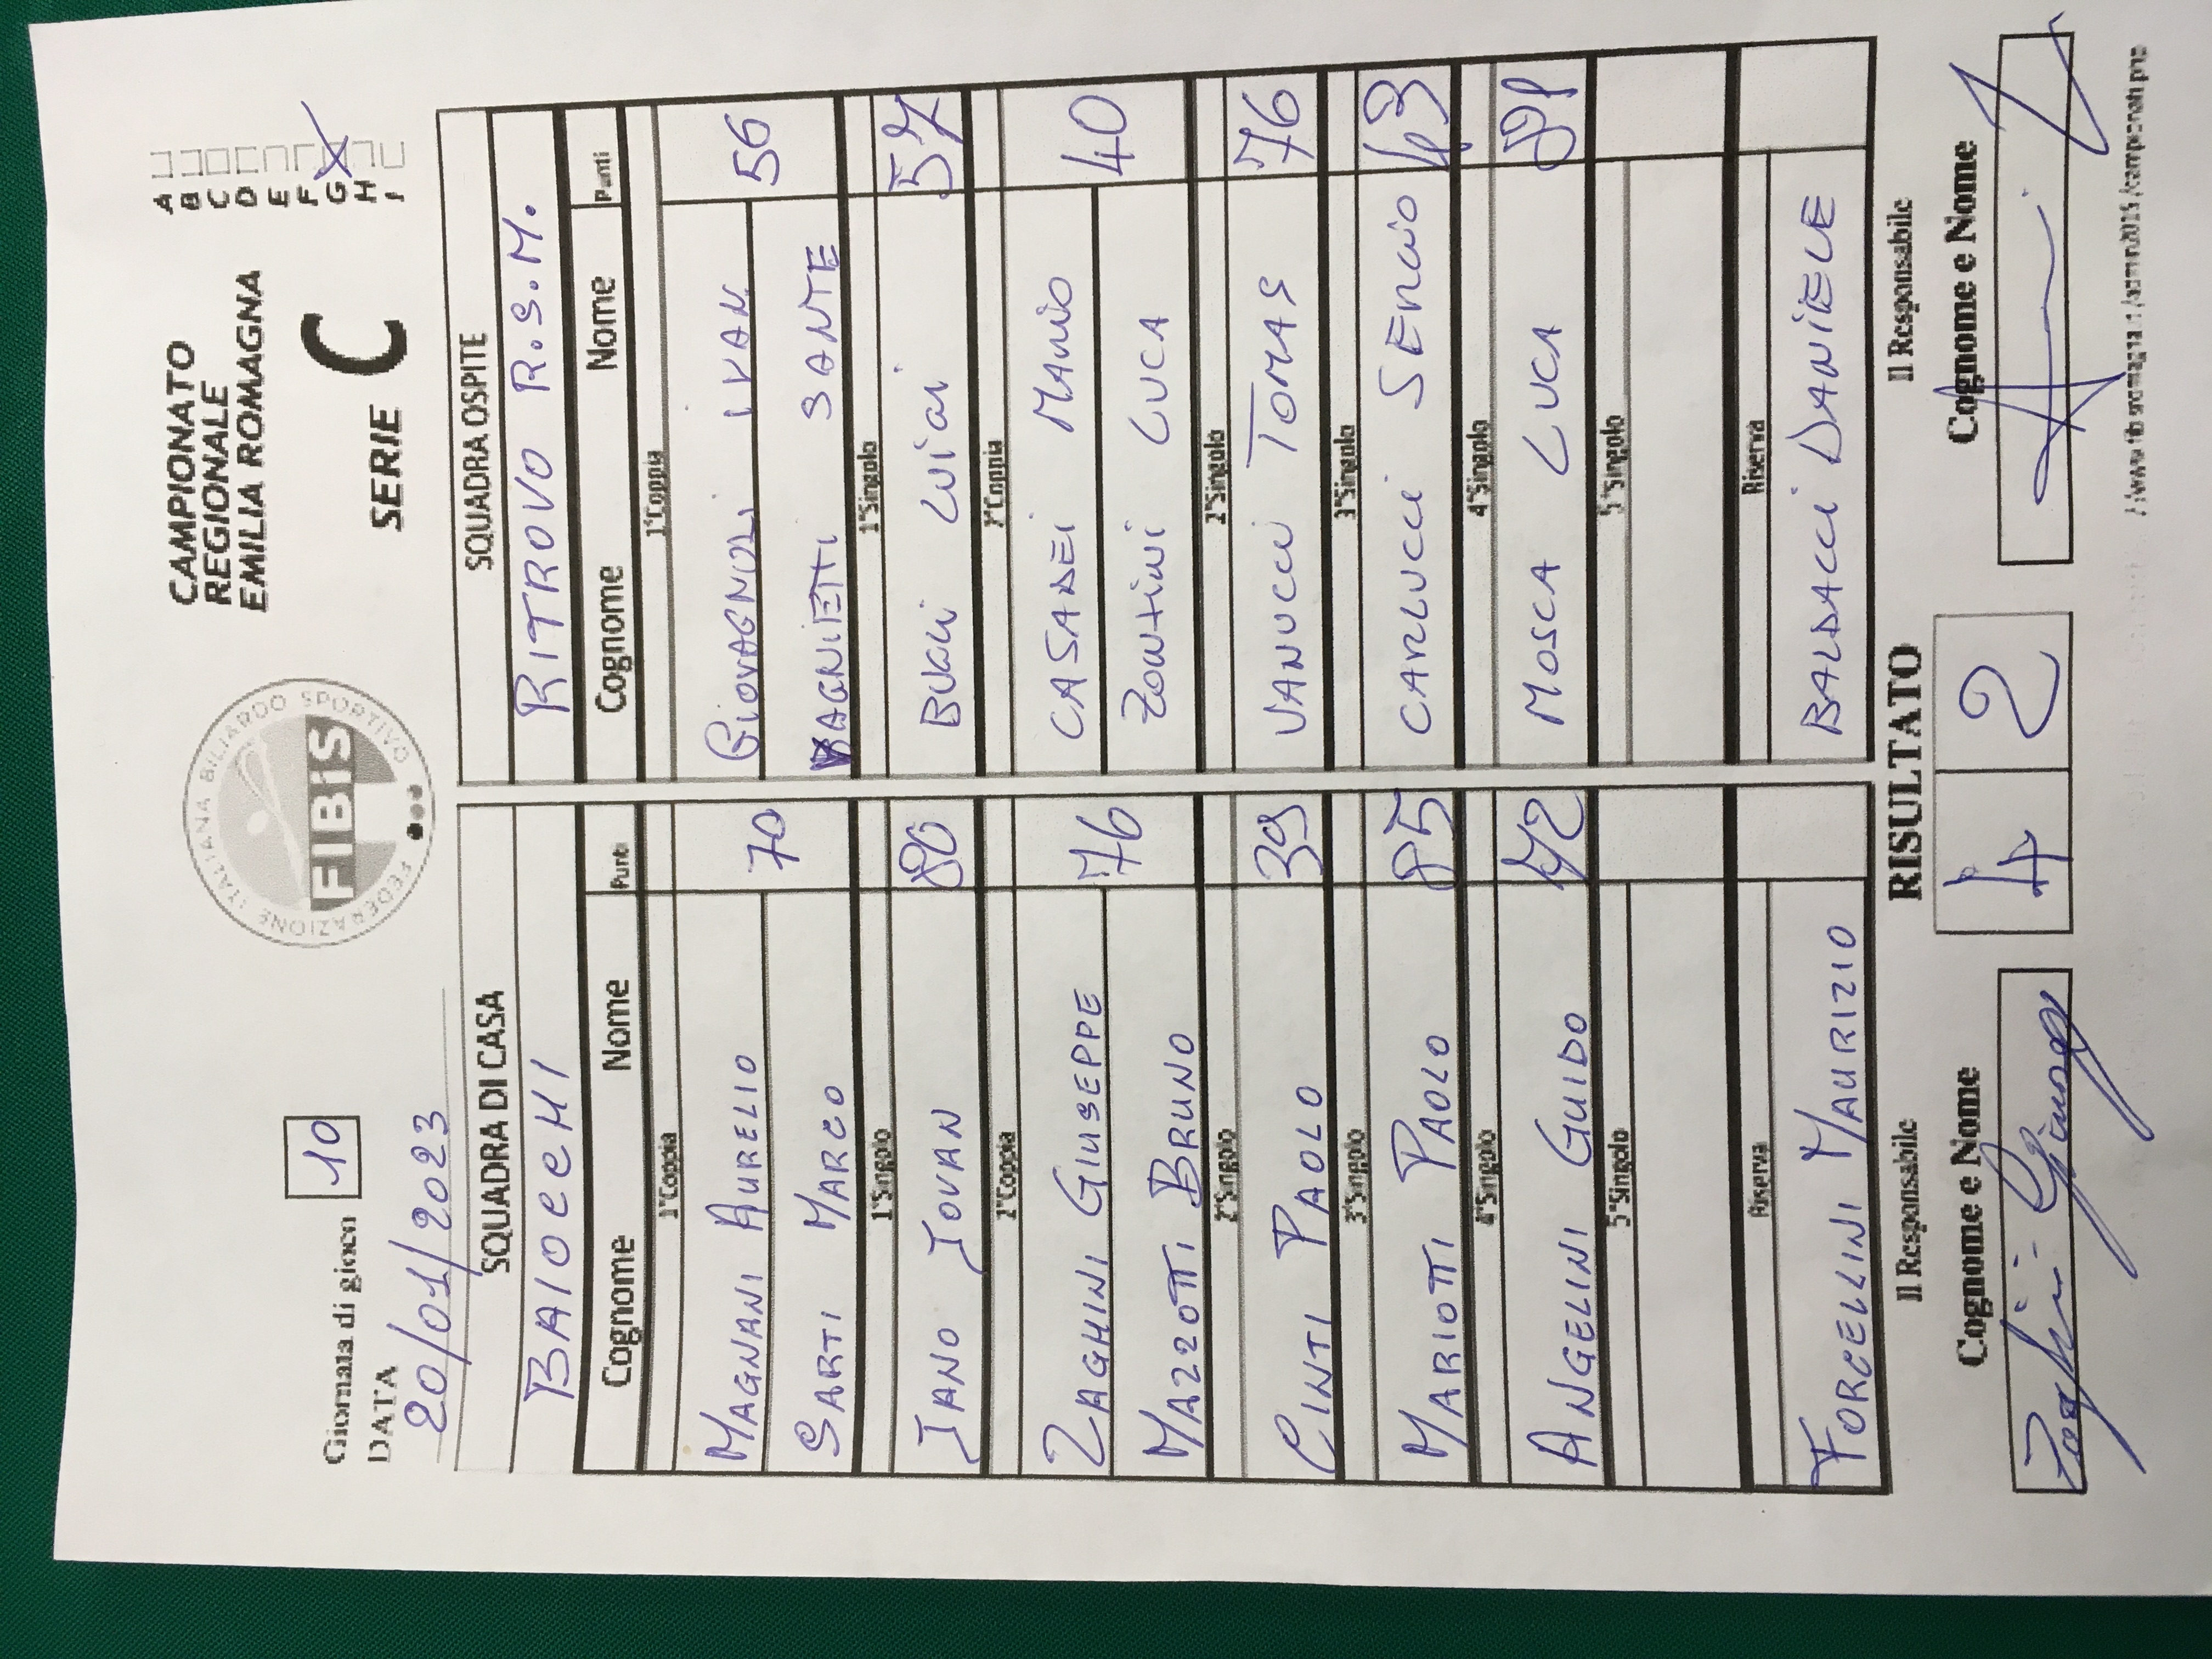 Giornata di gioco 10
DATA
20/01/2023
FEDERAZIONE ITALIANA BILIARDO SPORTIVO
FIBiS
CAMPIONATO
REGIONALE
EMILIA ROMAGNA
SERIE C
A
B
C
D
E
F
G X
H
I
SQUADRA DI CASA SQUADRA OSPITE
BAIOCCHI RITROVO R.S.M.
Cognome Nome Punti Cognome Nome Punti
1°Coppia 1°Coppia
MAGNANI AURELIO GIOVAGNOLI IVAN
70 56
SARTI MARCO BAGNIETTI SANTE
1°Singolo 1°Singolo
IANO IOVAN 80 BUGLI LUIGI 57
2°Coppia 2°Coppia
ZAGHINI GIUSEPPE CASADEI MARIO
76 40
MAZZOTTI BRUNO ZONTINI LUCA
2°Singolo 2°Singolo
CINTI PAOLO 39 VANUCCI TOMAS 76
3°Singolo 3°Singolo
MARIOTTI PAOLO 85 CARLUCCI SERGIO 43
4°Singolo 4°Singolo
ANGELINI GUIDO 42 MOSCA LUCA
5°Singolo 5°Singolo
Riserva Riserva
FORCELLINI MAURIZIO BALDACCI DANIELE
Il Responsabile RISULTATO Il Responsabile
Cognome e Nome 4 2 Cognome e Nome